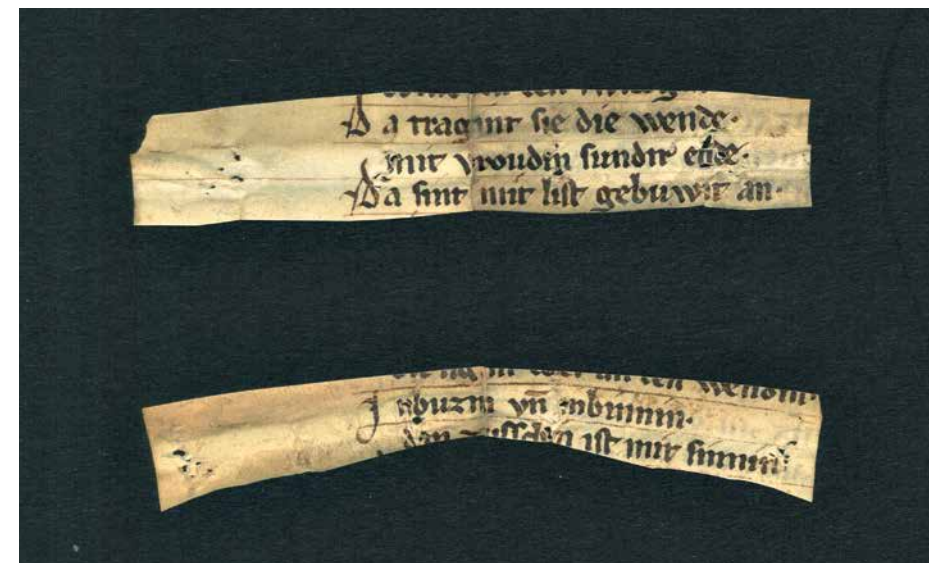 Da tragint sie die wende·
mit vroudin sundir ende·
Da sint mit list gebuwit an·
wendin·
Inbuzin vn̄ inbinnin·
ist mit sinnin